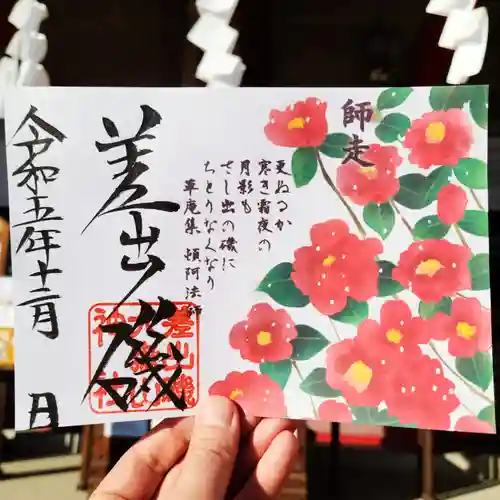 師走
更ぬるか
寒き霜夜の
月影も
さし出の磯に
ちとりなくなり
草庵集 頓阿法師
差出磯
令和五年十二月 日